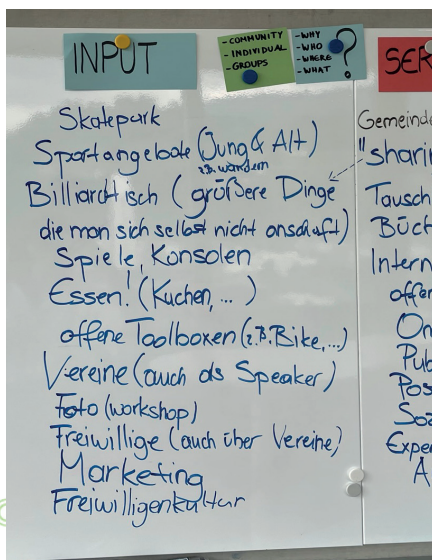 INPUT
- COMMUNITY
- INDIVIDUAL
- GROUPS
- WHY
- WHO
- WHERE
- WHAT
?
SER
Skatepark
Sportangebote (Jung & Alt)
z.B. wandern
Billiardtisch (größere Dinge
die man sich selbst nicht anschaft)
Spiele, Konsolen
Essen! (Kuchen, ...)
offene Toolboxen (z.B. Bike, ...)
Vereine (auch als Speaker)
Foto (workshop)
Freiwillige (auch über Vereine)
Marketing
Freiwilligenkultur
Gemeinde
"sharin
Tausch
Büch
Intern
offer
On
Pub
Pos
Soz
Exper
A